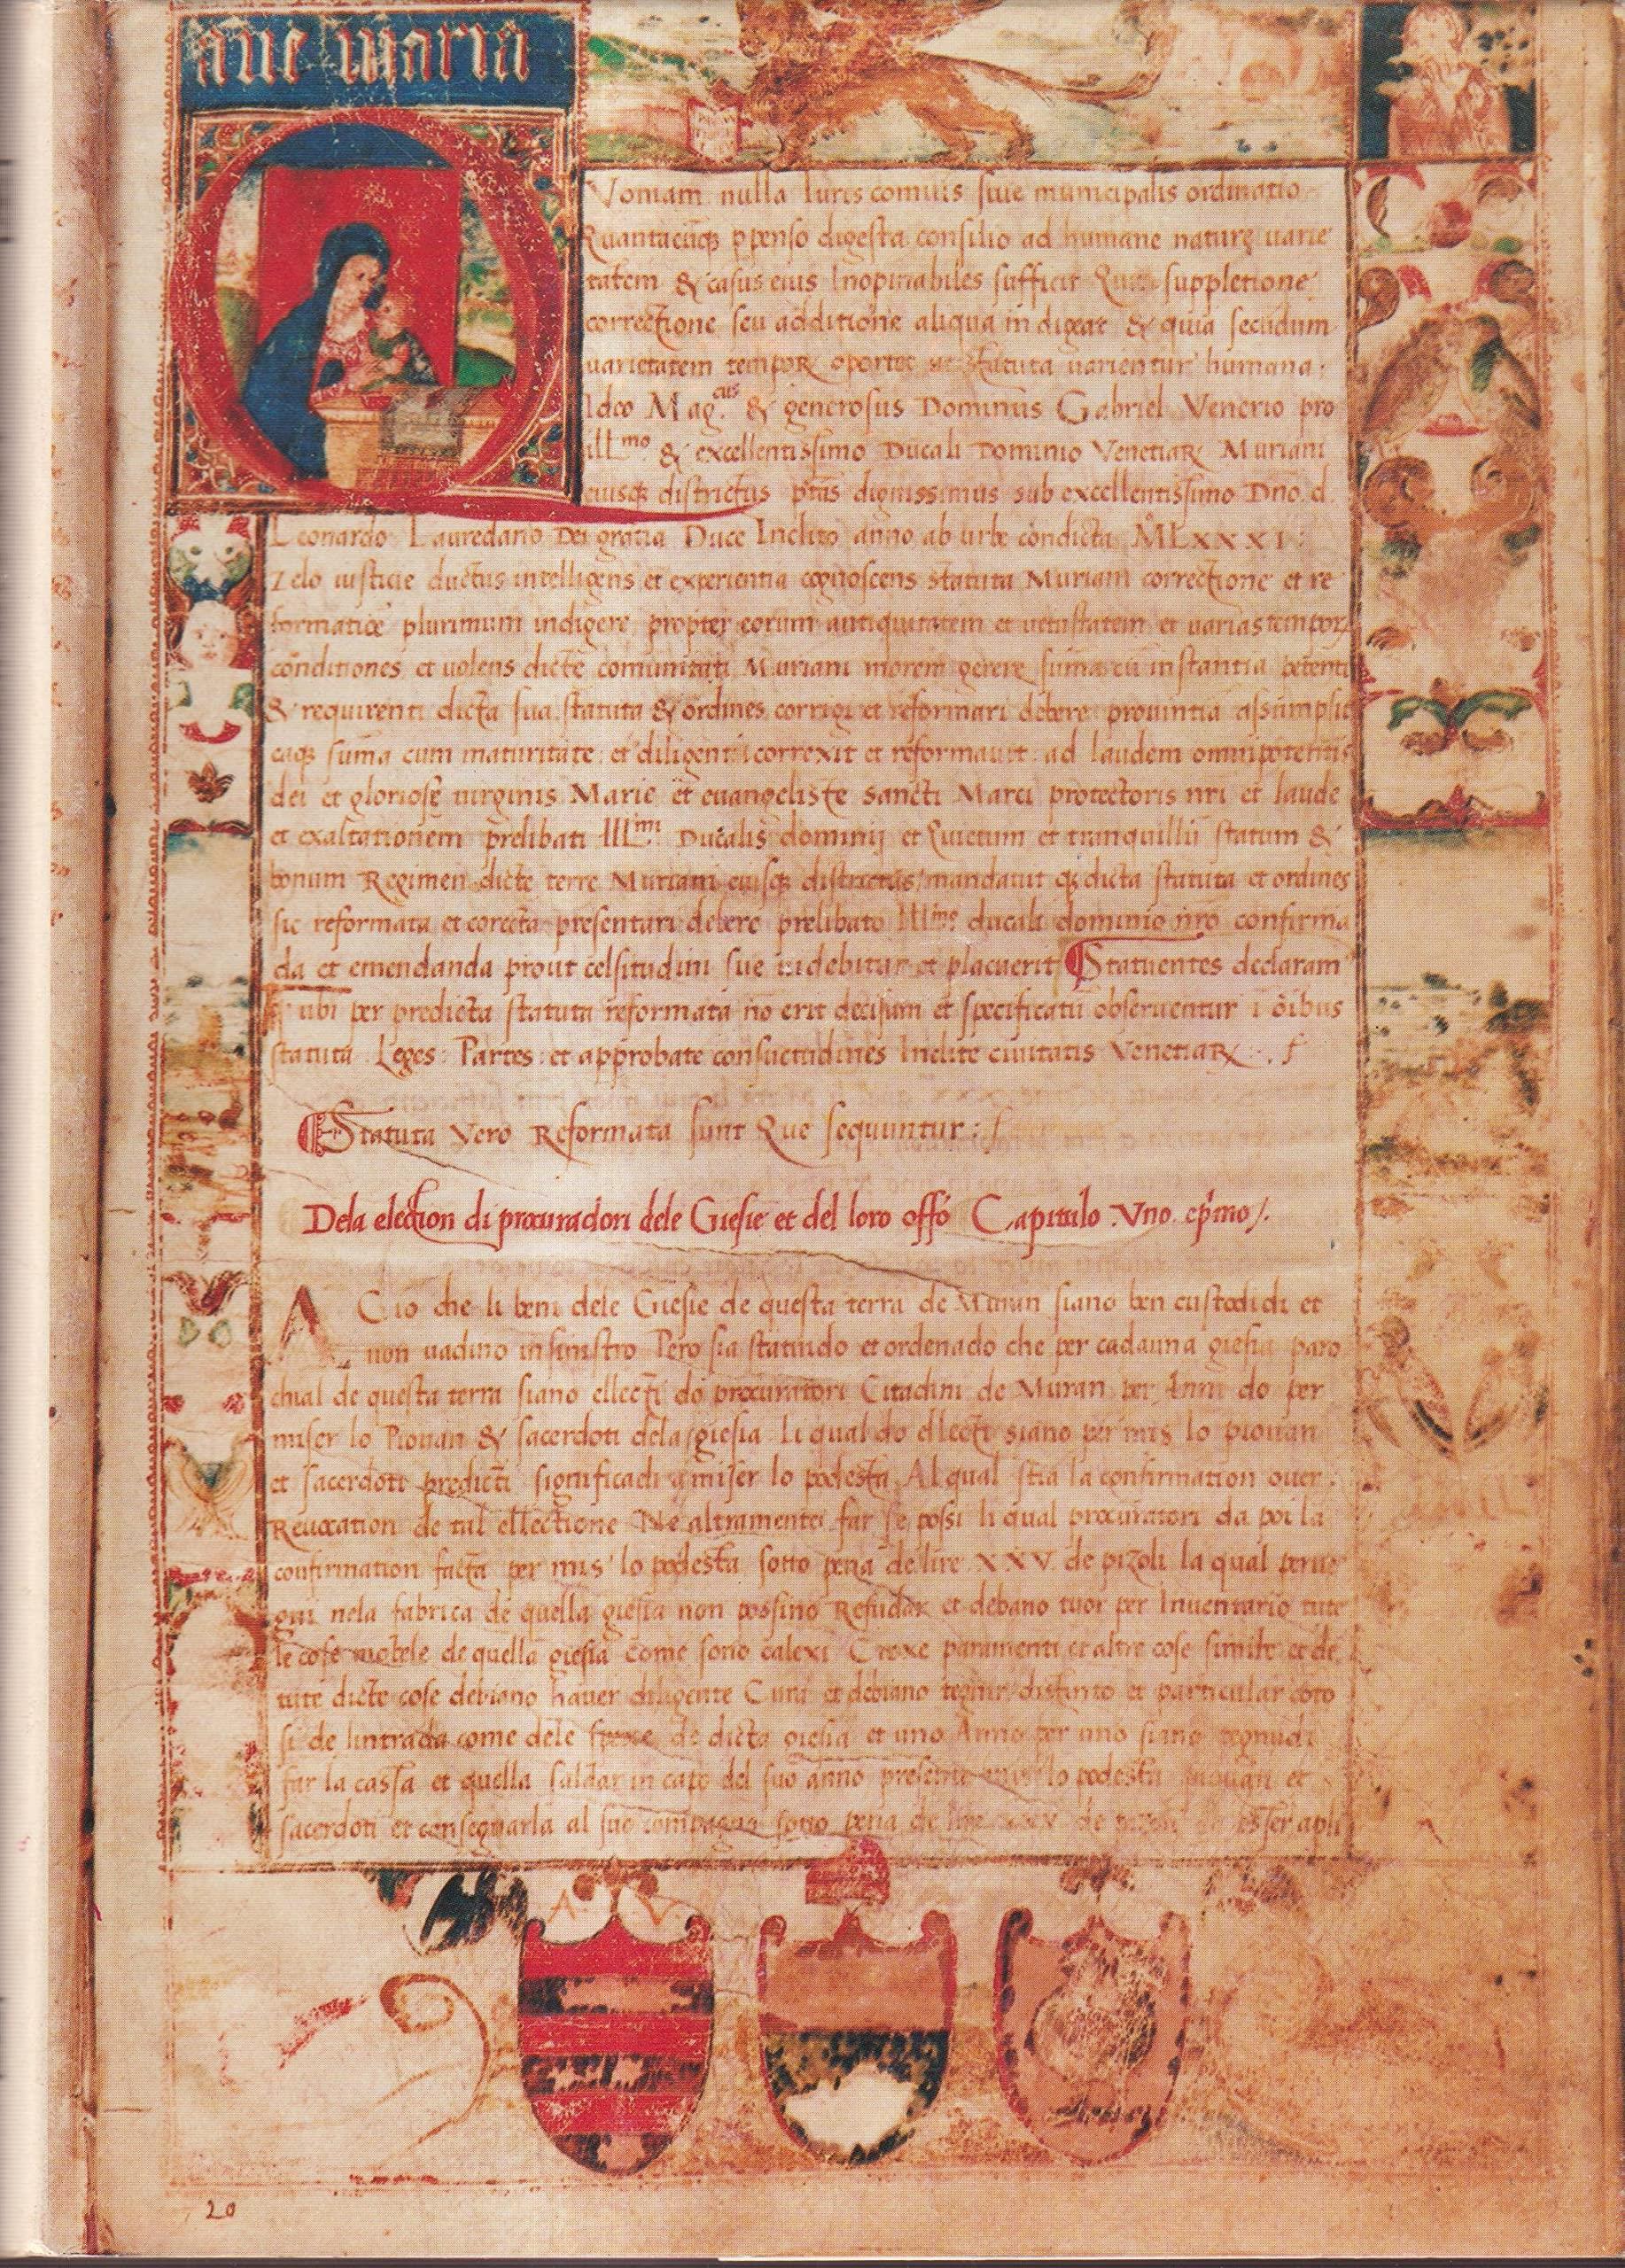 aue maria
Voniam nulla Iuris comunis siue municipalis ordinatio
Quantacūqꝫ ppenso digesta consilio ad humane naturę uarie
tatem & casus eius Inopinabiles sufficit Quin suppletione
correctione seu additione aliqua indigeat & quia secūdum
uarietatem tempoꝝ oportet ut statuta uarientur humana:
Ideo Mag.cus & generosus Dominus Gabriel Venerio pro
illmo & excellentissimo Ducali Dominio Venetiaꝝ Muriani
eiusqꝫ districtus ptās dignissimus sub excellentissimo Dno. d.
Leonardo Lauredano Dei gratia Duce Inclito anno ab urbe condicta MLXXXI:
Zelo iusticie ductus intelligens et experientia cognoscens statuta Muriani correctione et re
formatiōe plurimum indigere propter eorum antiquitatem et uetustatem et uarias tempoꝝ
conditiones et uolens dicte comunitati Muriani morem gerere suma cū instantia petenti
& requirenti dicta sua statuta & ordines corrigi et reformari debere prouintia assumpsit
eaqꝫ suma cum maturitate et diligenti correxit et reformauit ad laudem omnipotentis
dei et gloriosę uirginis Marie et euangeliste sancti Marci protectoris nri et laude
et exaltationem prelibati Illmi Ducalis dominij et Quietum et tranquillū statum &
bonum Regimen dicte terre Muriani eiusqꝫ districtus mandauit qꝫ dicta statuta et ordines
sic reformata et corecta presentari debere prelibato Illmo ducali dominio nro confirma
da et emendanda prout celsitudini sue uidebitur et placuerit Statuentes declaram
ubi per predicta statuta reformata nō erit decisum et specificatū obseruentur ī oībus
statuta Leges: Partes: et approbate consuetudines Inclite ciuitatis Venetiaꝝ
Statuta Vero Reformata sunt Que sequuntur:
Dela election di procuradori dele Giesie et del loro offō Capitulo Vno. ep̄mo
A Cio che li beni dele Giesie de questa terra de Muran siano ben custodidi et
non uadino in sinistro Pero sia statuido et ordenado che per cadauna giesia paro
chial de questa terra siano ellecti do procuratori Citadini de Muran per Anni do per
miser lo Piouan & sacerdoti dela giesia Li qual do ellecti siano per mis lo piouan
et sacerdoti predicti significadi a miser lo podesta Al qual stia la confirmation ouer
Reuocation de tal ellectione Ne altramente far se possi li qual procuratori da poi la
confirmation facta per mis lo podesta sotto pena de lire XXV. de pizoli la qual perue
gni nela fabrica de quella giesia non possino Refudar et debano tuor per Inuentario tute
le cose mobele de quella giesia Come sono calexi Croxe paramenti et altre cose simile et de
tute dicte cose debiano hauer diligente Cura et debiano tegnir distinto et particular coto
si de lintrada come dele spexe de dicta giesia et uno Anno per uno siano tegnudi
far la cassa et quella saldar in capo del suo anno presente mis lo podesta piouan et
sacerdoti et consegnarla al suo compagno sotto pena de lire de esser apli
A V
20